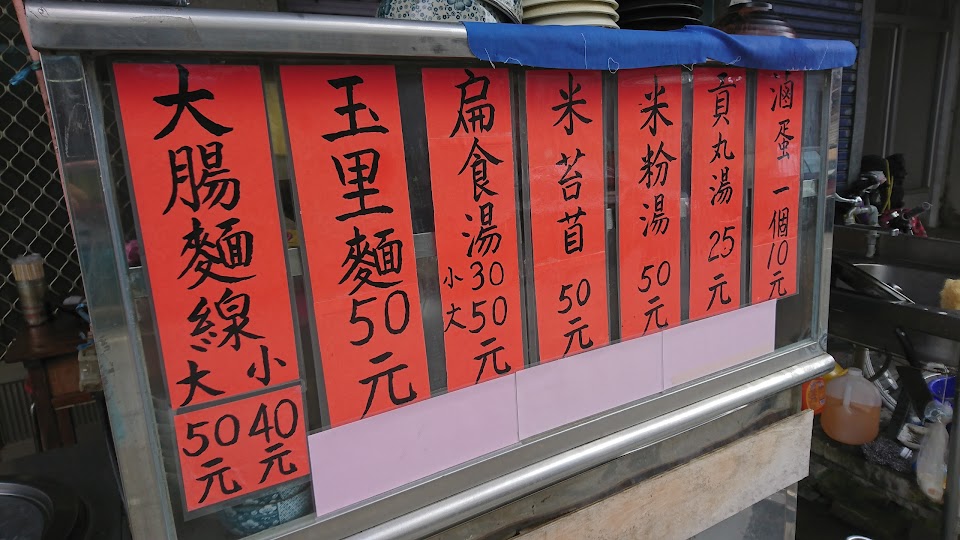 大腸麵線
小40元
大50元
玉里麵 50元
扁食湯
小30
大50元
米苔苜 50元
米粉湯 50元
貢丸湯 25元
滷蛋 一個10元